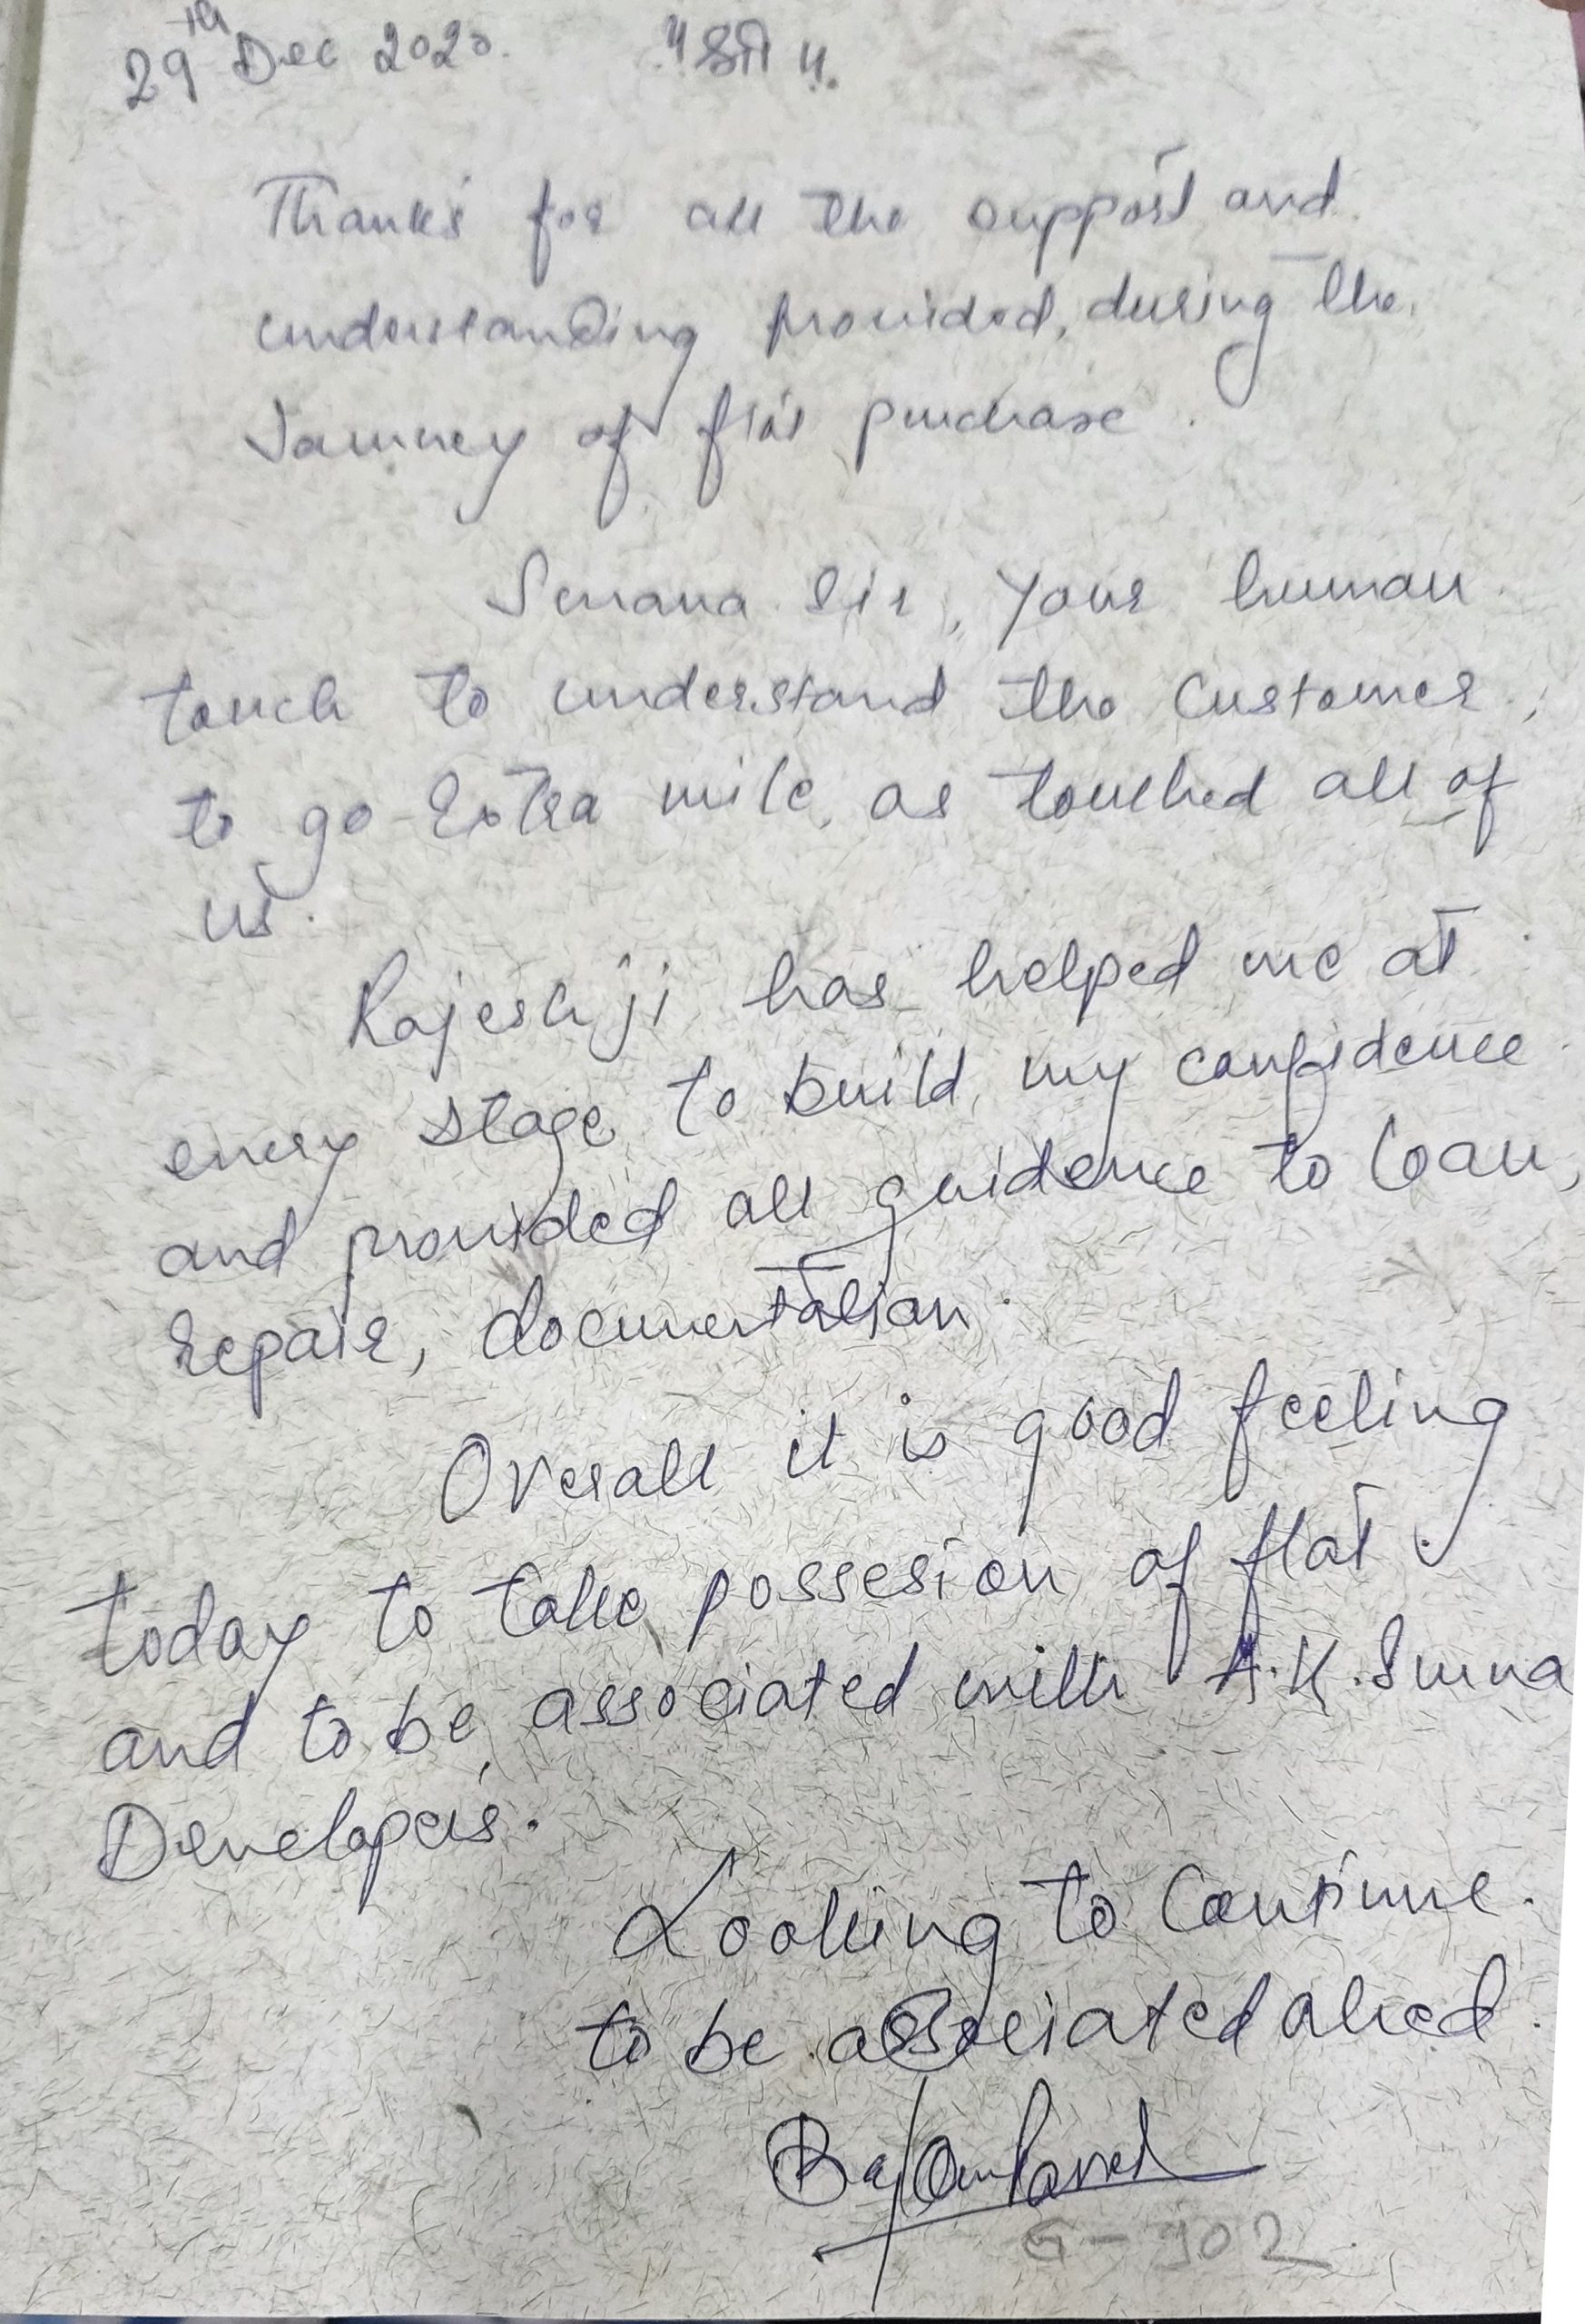 29th Dec 2020. "श्री".
Thanks for all the support and
understanding provided, during the
Journey of flat purchase.
Surana Sir, Your human
touch to understand the customer,
to go Extra mile, as touched all of
us.
Rajesh ji has helped me at
every stage to build my confidence
and provided all guidence to loan,
repair, documentation.
Overall it is good feeling
today to take possesion of flat.
and to be associated with A.K. Surana
Developers.
Looking to Continue.
to be associated ahed.
G-902